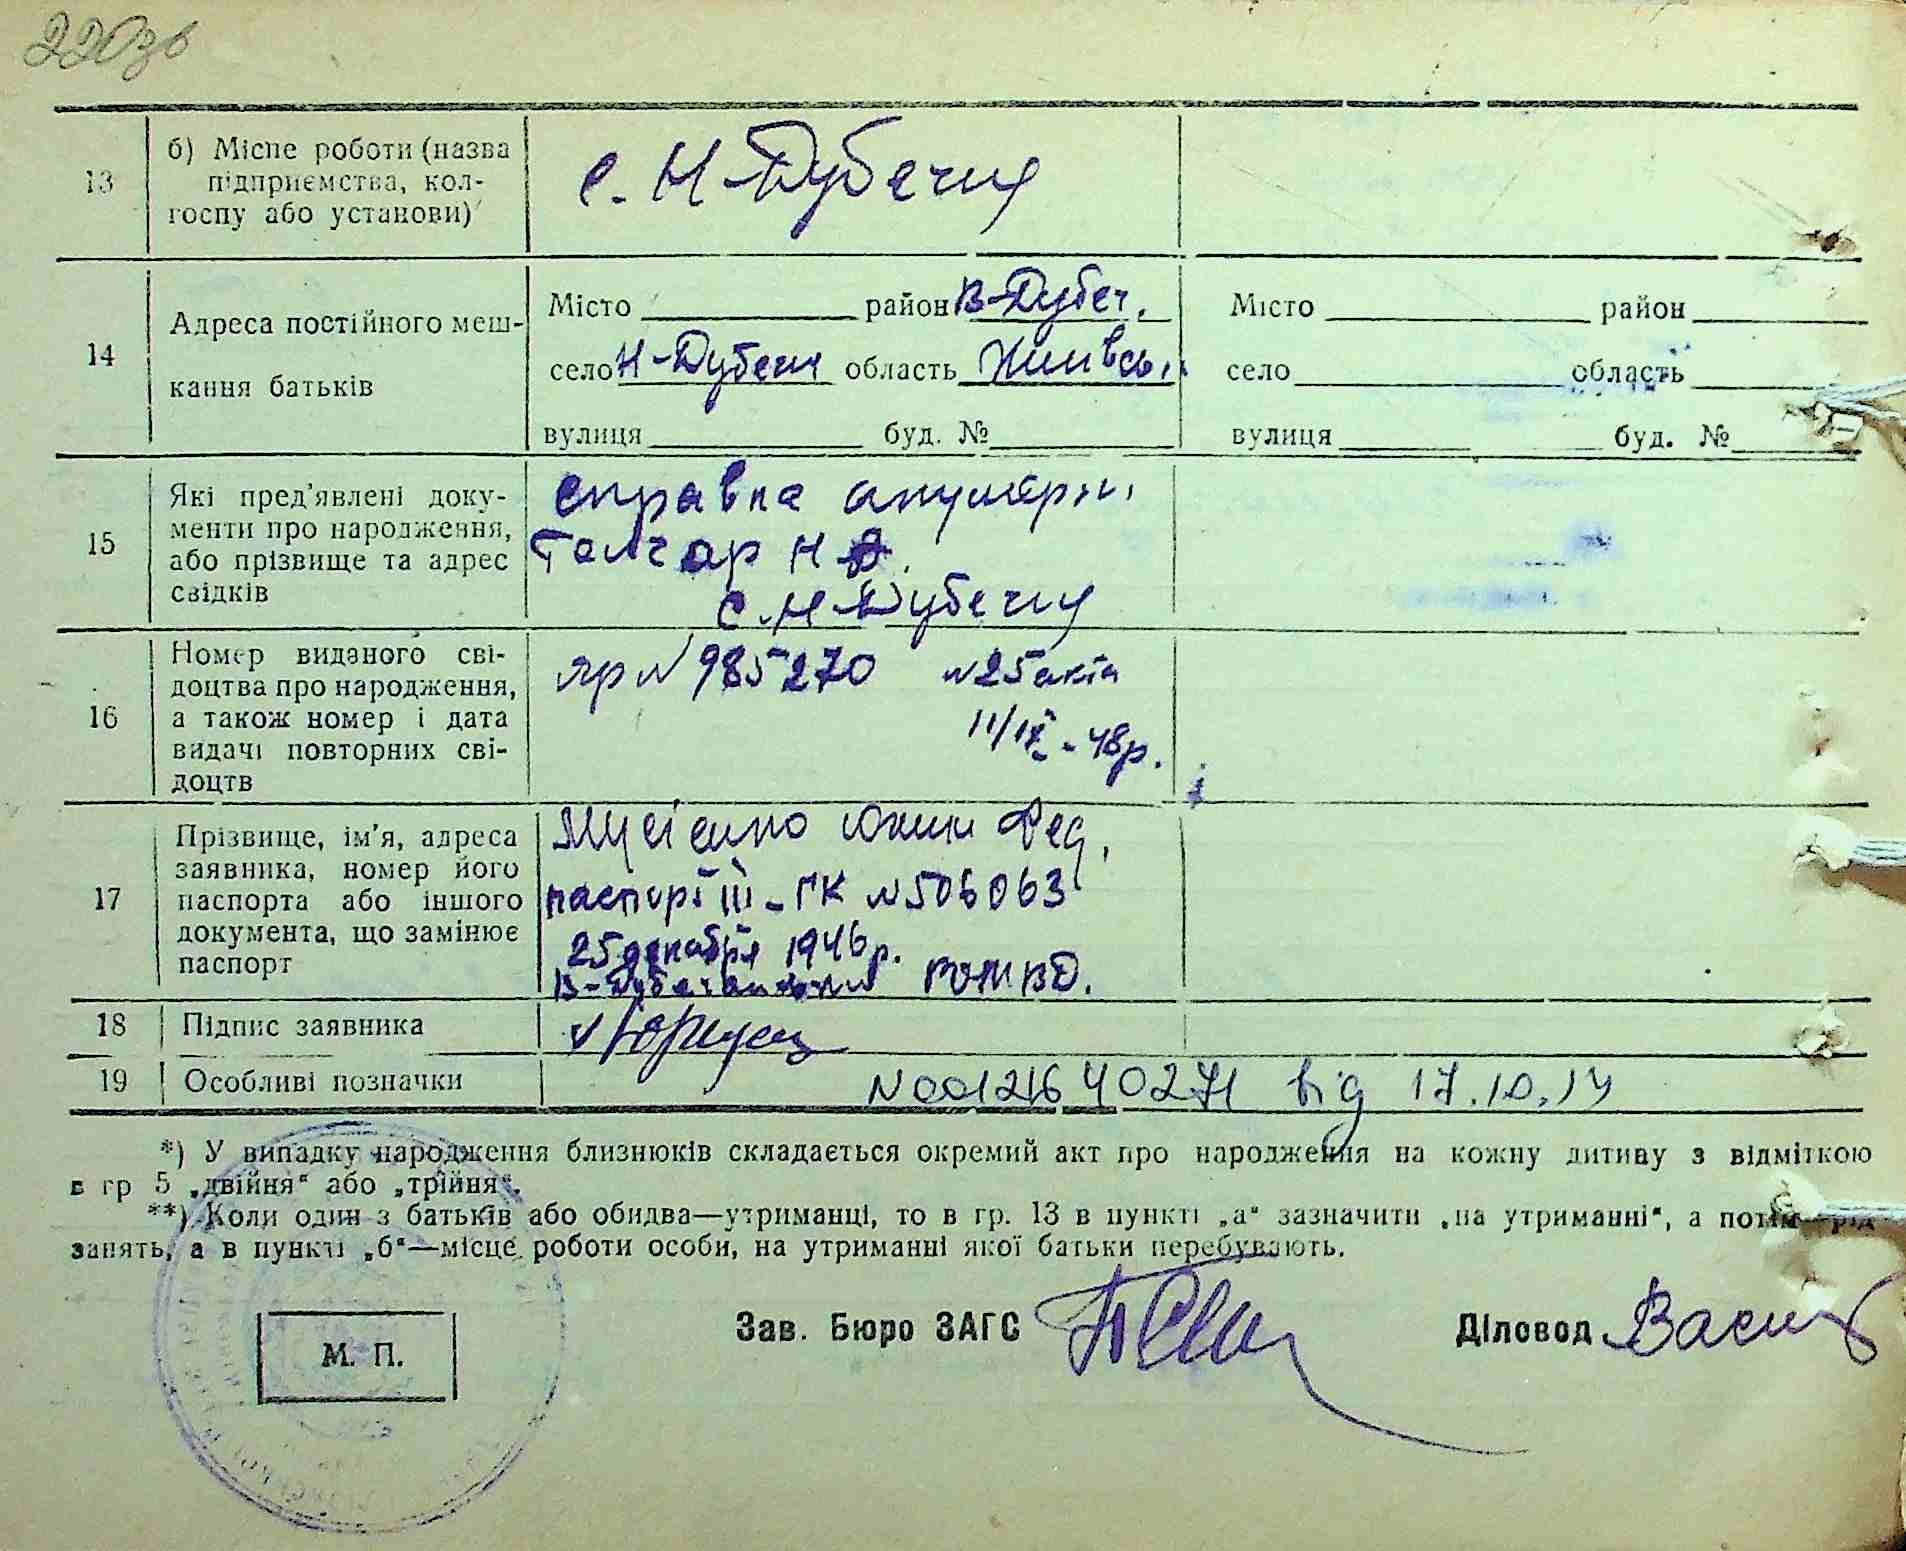 220зв
13
б) Місце роботи (назва
підприємства, кол-
госпу або установи)
с. Н-Дубечня
14
Адреса постійного меш-
кання батьків
Місто район В-Дубеч.
село Н-Дубечня область Київсь.
вулиця буд. №
Місто район
село область
вулиця буд. №
15
Які пред'явлені доку-
менти про народження,
або прізвище та адрес
свідків
справка акушерки
Гончар Н
с. Н-Дубечня
16
Номер виданого сві-
доцтва про народження,
а також номер і дата
видачі повторних сві-
доцтв
№ 985270 №25 акта
11/IX - 48р.
17
Прізвище, ім'я, адреса
заявника, номер його
паспорта або іншого
документа, що замінює
паспорт
Мусієнко Юхим Фед,
паспорт III-ГК №506063
25 декабря 1946р.
В-Дубечанським РОМВД.
18
Підпис заявника
19
Особливі позначки
N00121640271 від 17.10.14
*) У випадку народження близнюків складається окремий акт про народження на кожну дитину з відміткою
в гр 5 „двійня“ або „трійня“.
**) Коли один з батьків або обидва—утриманці, то в гр. 13 в пункті „а“ зазначити „на утриманні“, а потім рід
занять, а в пункті „б“—місце роботи особи, на утриманні якої батьки перебувають.
М. П.
Зав. Бюро ЗАГС
Діловод